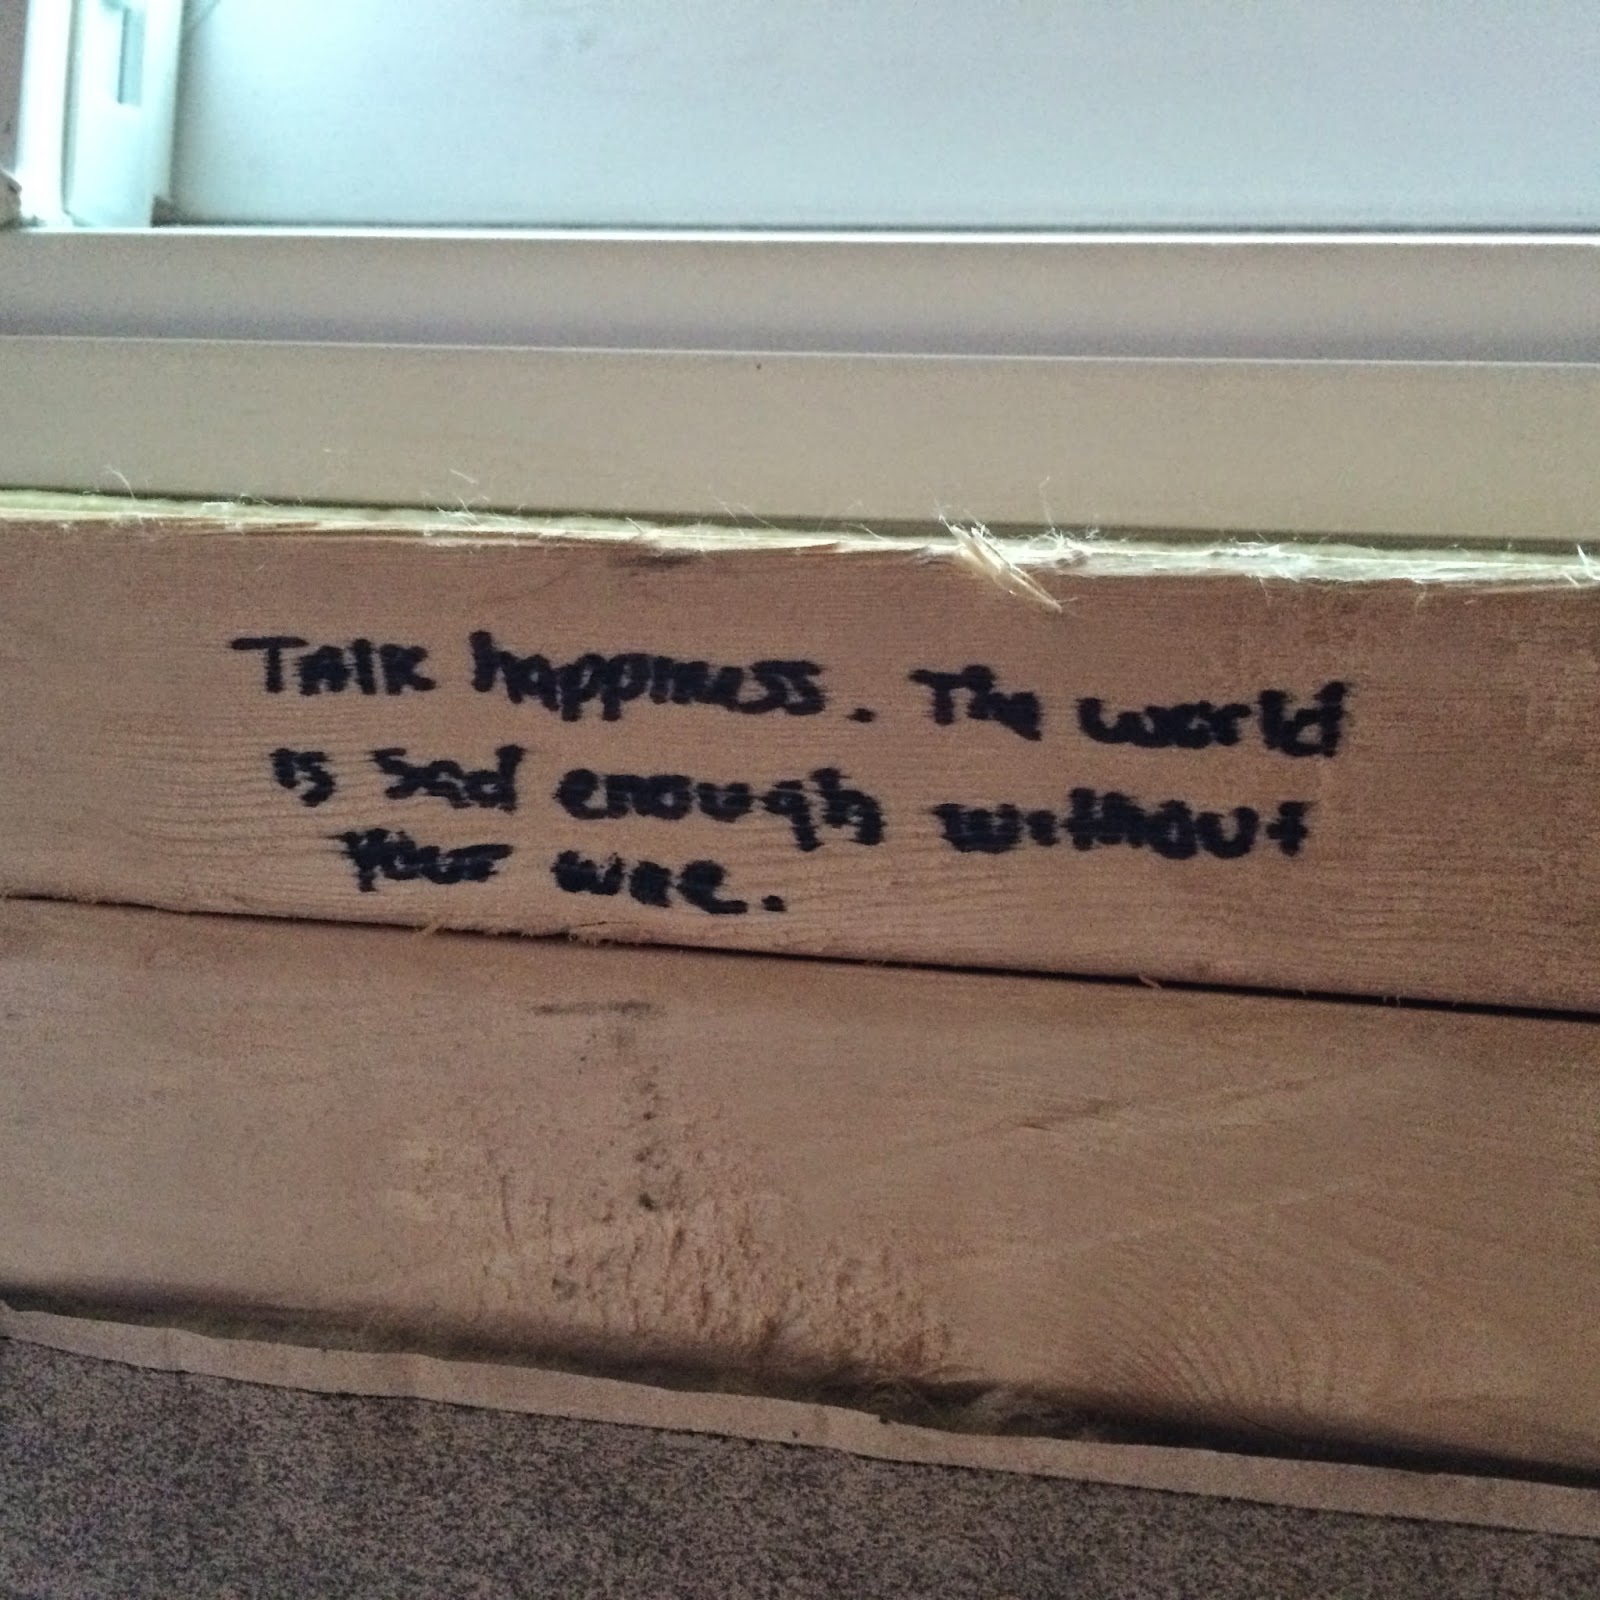 Talk happiness. The world
is sad enough without
your woe.